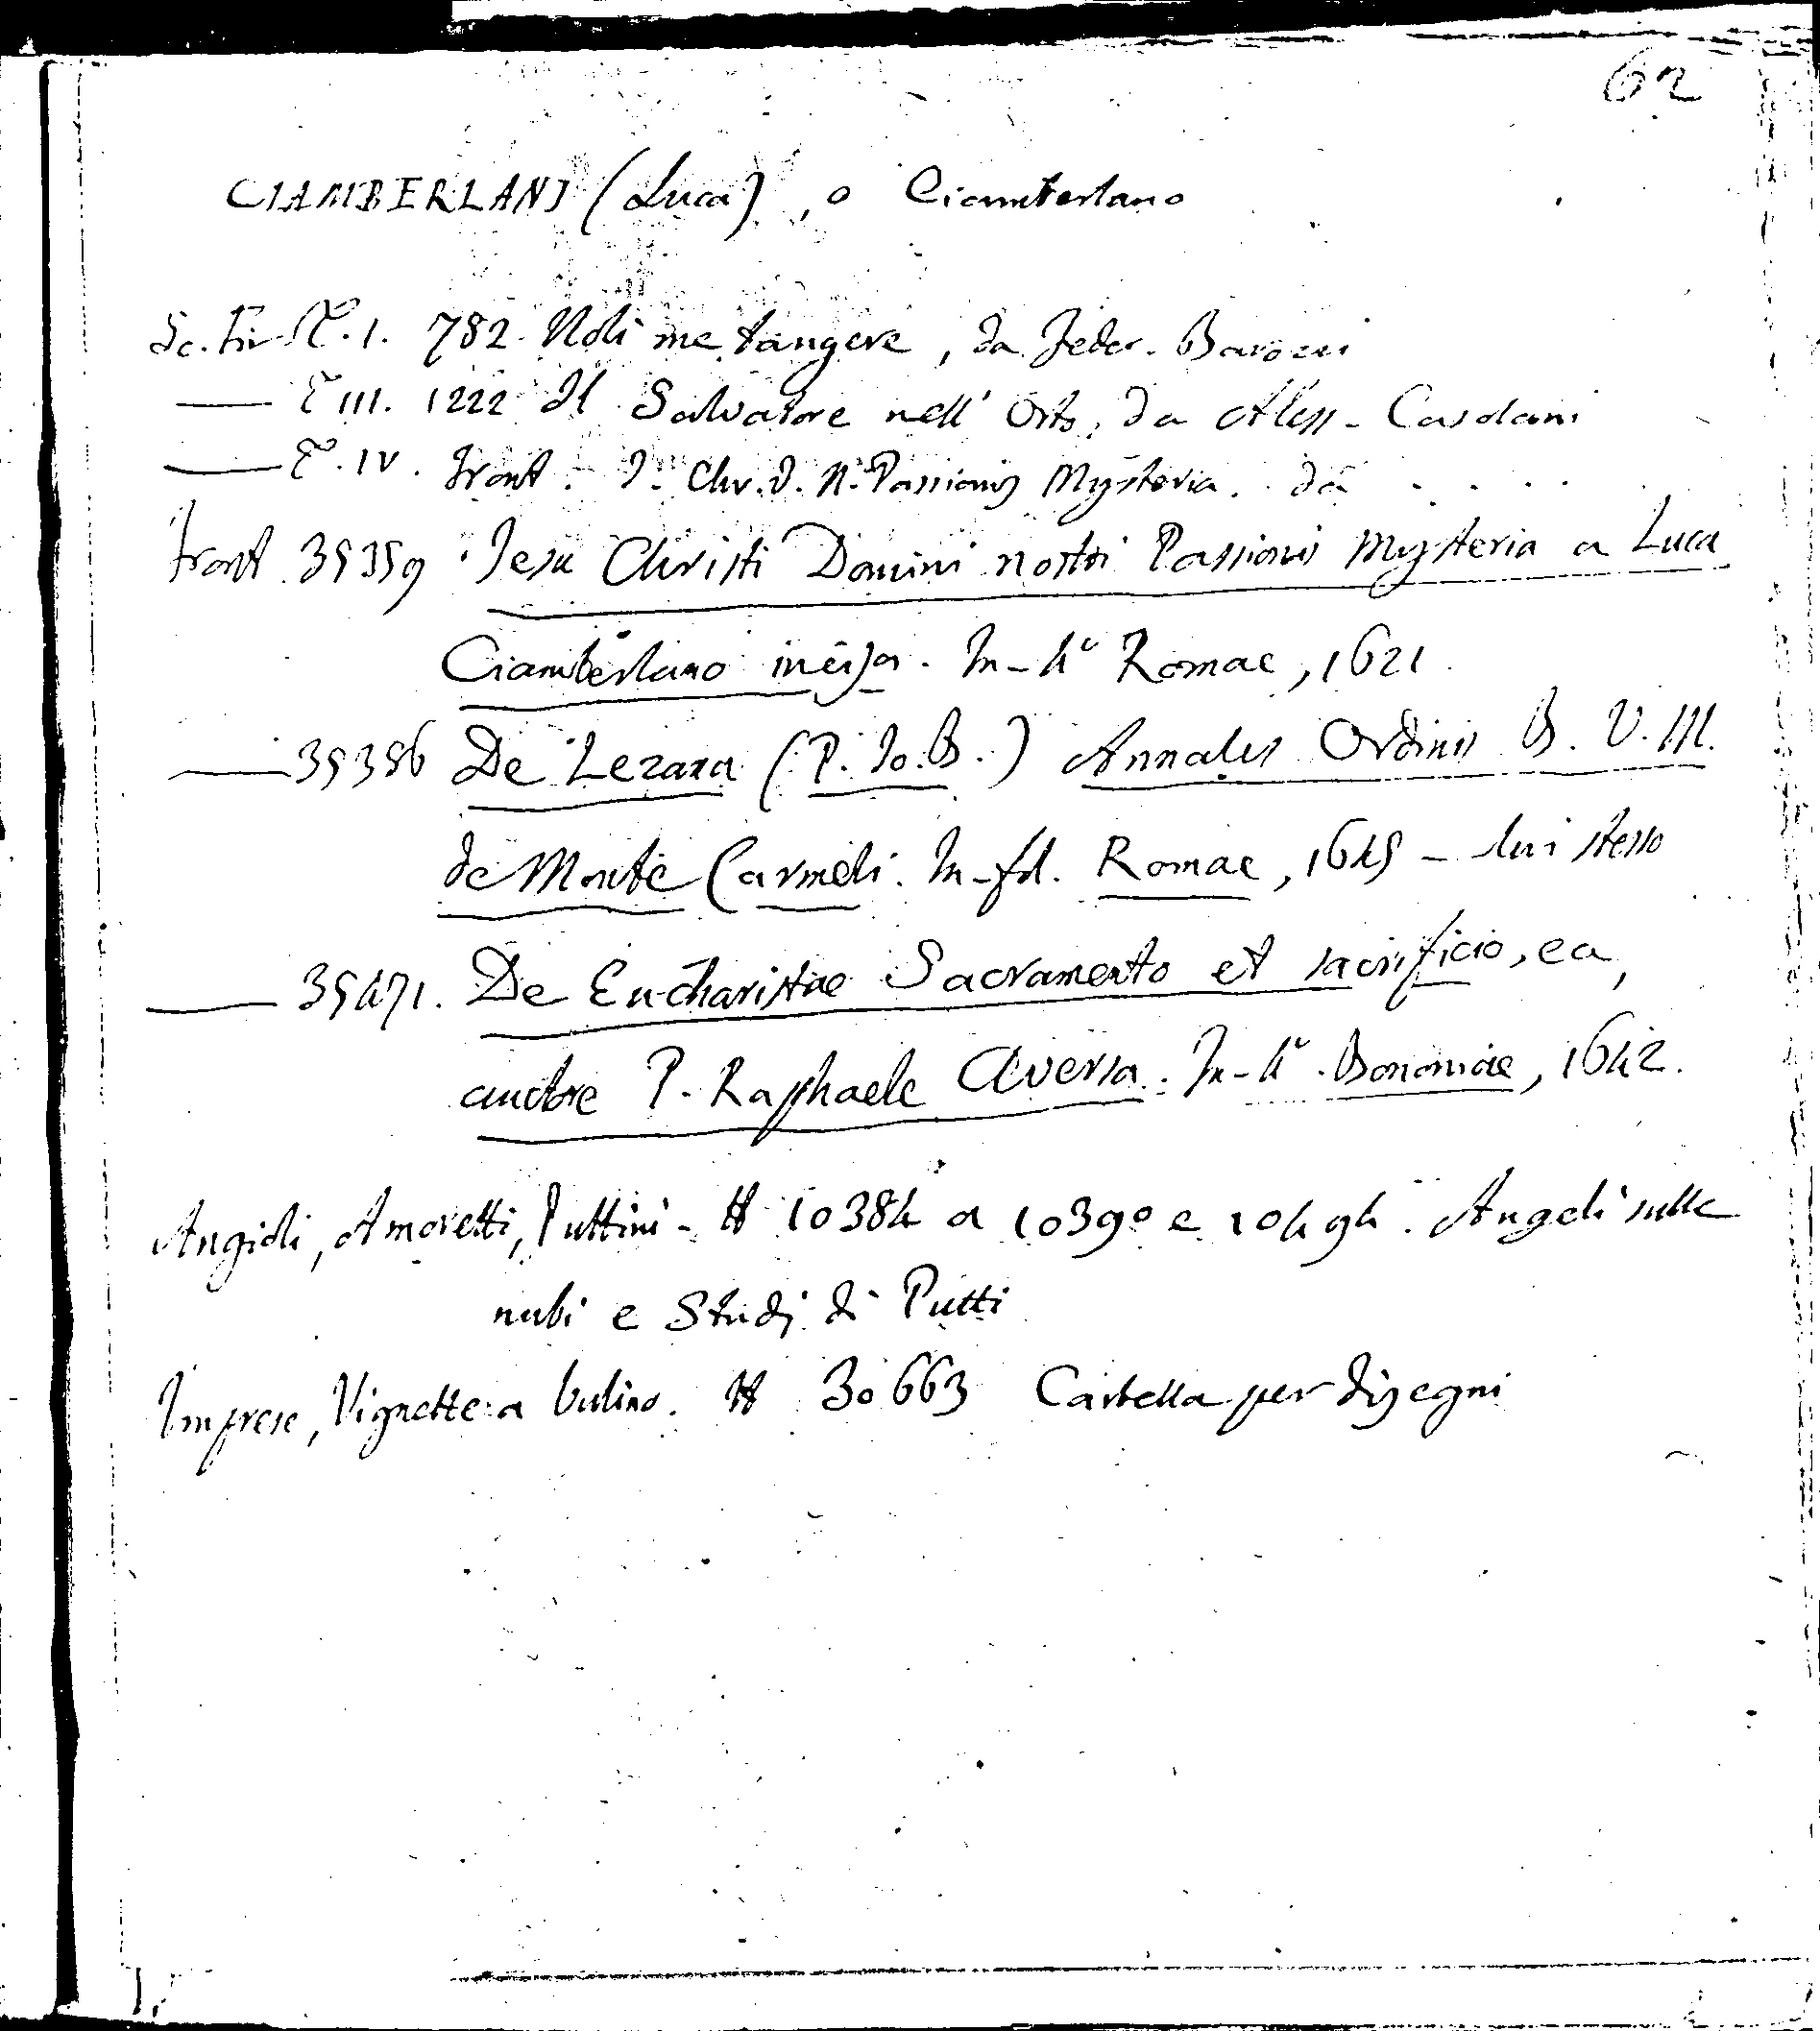 62
CIAMBERLANI (Luca), o Ciamberlano
Sc. Fir. T. I. 782. Noli me tangere, da Feder. Barocci
— T III. 1222 Il Salvatore nell' Orto, da Aless. Casolani
— T. IV. Front. I. Chr. D. N. Passionis Mysteria. da . . . .
Front 35359 . Jesu Christi Domini nostri Passionis Mysteria a Luca
Ciamberlano incisa. In-4° Romae, 1621.
— 35386 De Lezana (P. Io. B.) Annales Ordinis B. V. M.
de Monte Carmeli. In-fol. Romae, 1645 - lui stesso
— 35471. De Eucharistiae Sacramento et sacrificio, ea,
auctore P. Raphaele Aversa. In-4° . Bononiae, 1642.
Angioli, Amoretti, Puttini - H 10384 a 10390 e 10494. Angeli sulle
nubi e Studj di Putti
Imprese, Vignette a bulino. H 30663 Cartella per disegni